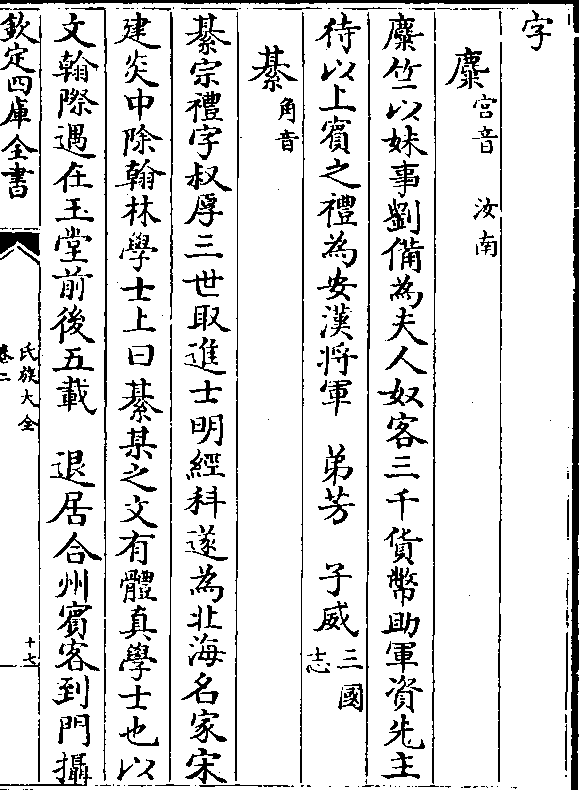 字
麋宮音 汝南
麋竺以妹事劉備為夫人奴客三千貨幣助軍資先主
待以上賓之禮為安漢將軍 弟芳 子威三國志
綦角音
綦宗禮字叔厚三世取進士明經科遂為北海名家宋
建炎中除翰林學士上曰綦某之文有體真學士也以
文翰際遇在玉堂前後五載 退居合州賓客到門攝
欽定四庫全書
氏族大全
卷二
十七